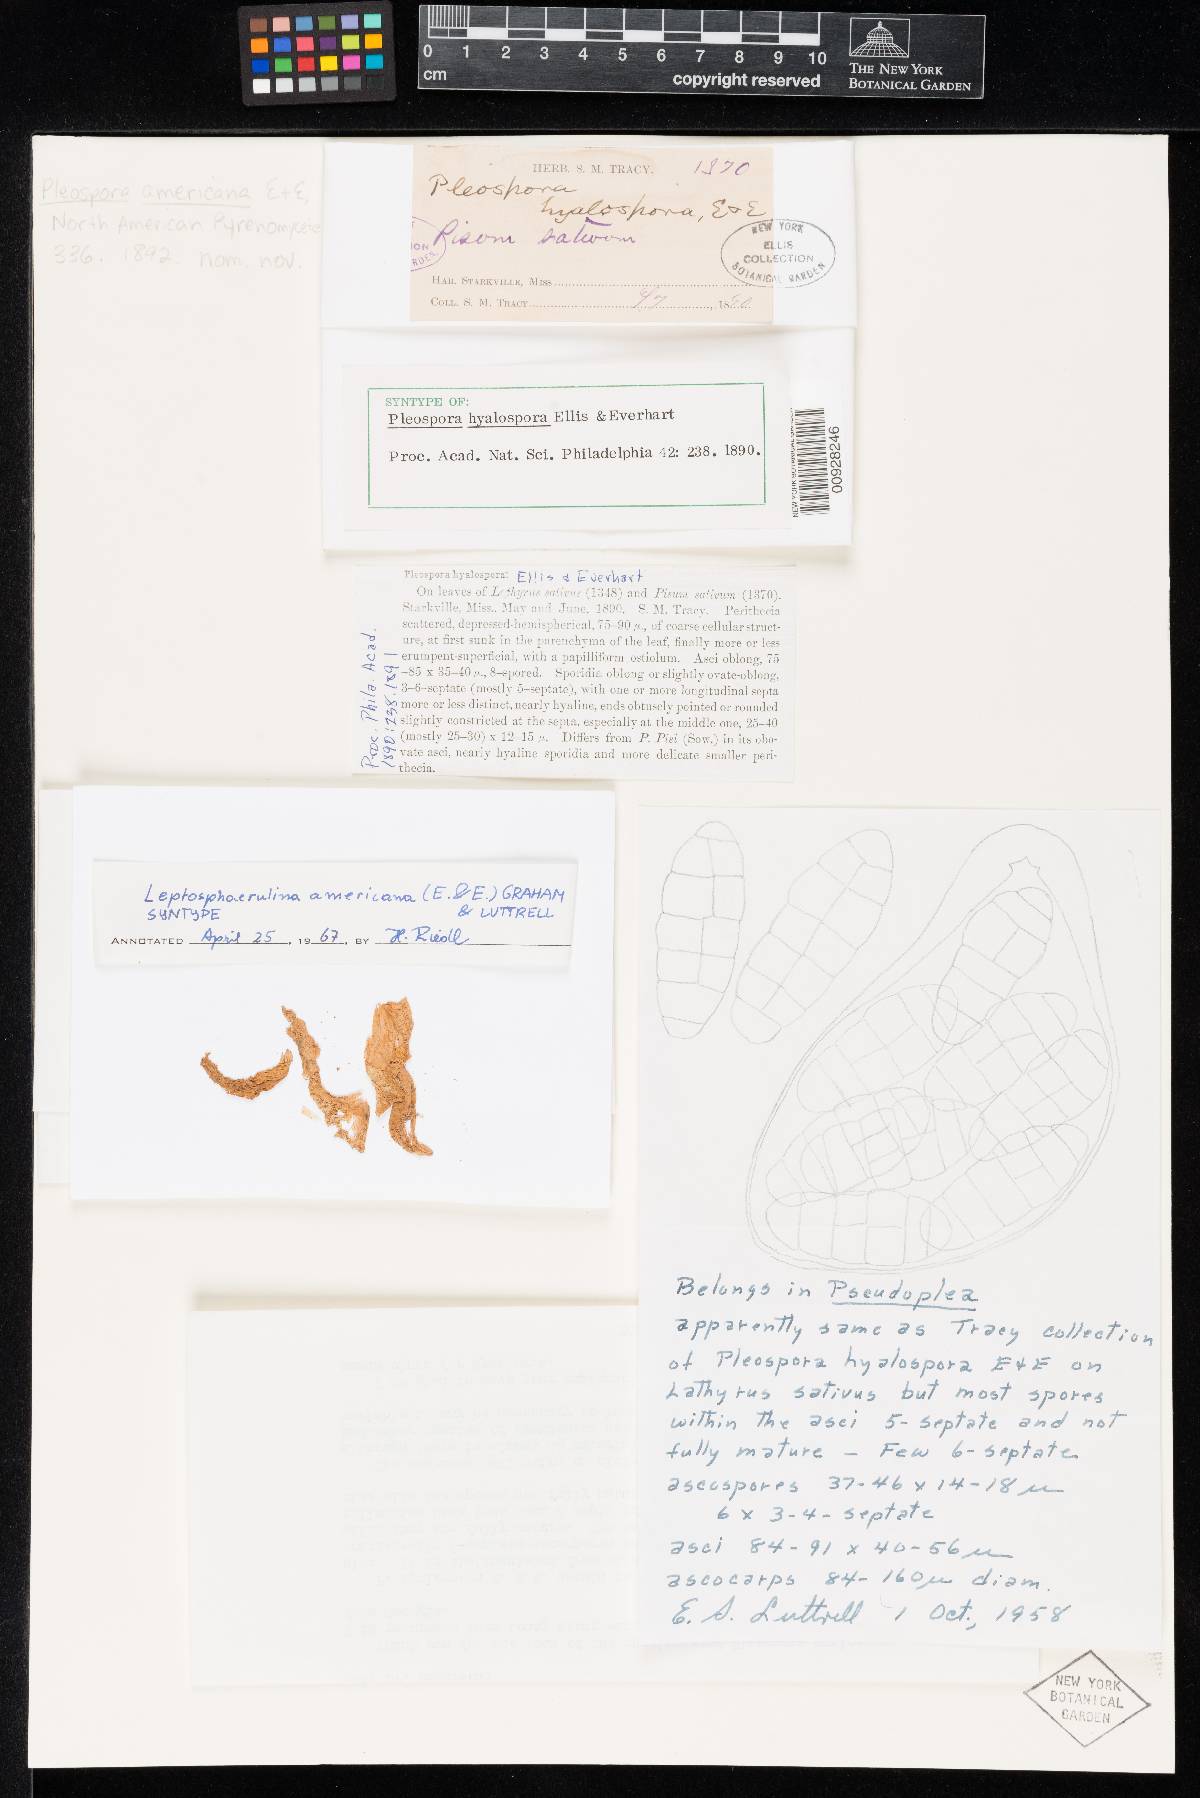 0 1 2 3 4 5 6 7 8 9 10
cm
copyright reserved
THE NEW YORK
BOTANICAL GARDEN
Pleospora americana E+E,
North American Pyrenomycetes
336. 1892. nom. nov.
HERB. S. M. TRACY. 1370
Pleospora
hyalospora, E & E
Pisum sativum
HAB. STARKVILLE, MISS
COLL. S. M. TRACY 6/7, 1890.
NEW YORK
ELLIS
COLLECTION
BOTANICAL GARDEN
SYNTYPE OF:
Pleospora hyalospora Ellis & Everhart
Proc. Acad. Nat. Sci. Philadelphia 42: 238. 1890.
NEW YORK BOTANICAL GARDEN
00928246
Pleospora hyalospora: Ellis & Everhart
On leaves of Lathyrus sativus (1348) and Pisum sativum (1370).
Starkville, Miss., May and June, 1890. S. M. Tracy. Perithecia
scattered, depressed-hemispherical, 75–90 µ, of coarse cellular struct-
ure, at first sunk in the parenchyma of the leaf, finally more or less
erumpent-superficial, with a papilliform ostiolum. Asci oblong, 75
–85 x 35–40 µ, 8-spored. Sporidia oblong or slightly ovate-oblong,
3–6-septate (mostly 5-septate), with one or more longitudinal septa
more or less distinct, nearly hyaline, ends obtusely pointed or rounded
slightly constricted at the septa, especially at the middle one, 25–40
(mostly 25–30) x 12–15 µ. Differs from P. Pisi (Sow.) in its obo-
vate asci, nearly hyaline sporidia and more delicate smaller peri-
thecia.
Proc. Phila. Acad.
1890:238.1891
Leptosphaerulina americana (E. & E.) GRAHAM
SYNTYPE & LUTTRELL
ANNOTATED April 25, 1967, BY H. Riedl
Belongs in Pseudoplea
apparently same as Tracy collection
of Pleospora hyalospora E & E on
Lathyrus sativus but most spores
within the asci 5-septate and not
fully mature – Few 6-septate
ascospores 37-46 x 14-18 µ
6 x 3-4-septate
asci 84-91 x 40-56 µ
ascocarps 84-160 µ diam.
E. S. Luttrell 1 Oct., 1958
NEW YORK
BOTANICAL
GARDEN